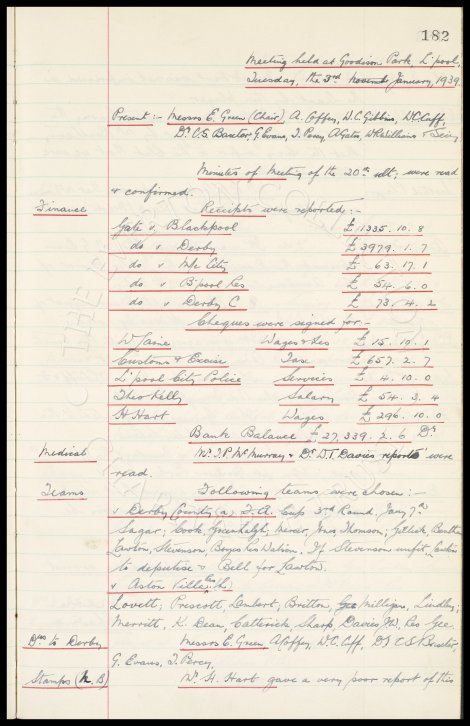 182
Meeting held at Goodison Park, L'pool,
Tuesday, the 3rd January, 1939
Present :- Messrs E. Green (Chair) A. Coffey, W.C. Gibbins, W.C. Cuff,
Dr C.S. Baxter, G. Evans, T. Percy, A. Gates, W.R. Williams & Secy.
Minutes of Meeting of the 20th ult, were read
& confirmed.
Finance Receipts were reported :-
Gate v. Blackpool £1335. 10. 8
do v Derby £3979. 1. 7
do v M/c City £63. 17. 1
do v B'pool Res £54. 6. 0
do v Derby C £73. 4. 2
Cheques were signed for :-
Wages & Ins £15. 10. 1
Customs & Excise Tax £657. 2. 7
L'pool City Police Services £4. 10. 0
Theo Kelly Salary £54. 3. 4
H Hart Wages £296. 10. 0
Bank Balance £27,339. 2. 6 Dr
Medical Mr T.P. McMurray & Dr D.T. Davies reports were
read.
Teams Following teams were chosen :-
v Derby County (a) F.A. Cup 3rd Round, Jany 7th
Sagar; Cook, Greenhalgh; Mercer, Jones Thomson; Gillick, Bentham
Lawton, Stevenson, Boyes Res Watson. If Stevenson unfit,
to deputise & Bell for Lawton.
v Aston Villa Res (h)
Lovett; Prescott, Lambert, Britton, Gee Milligan, Lindley;
Merritt, K. Dean, Catterick, Sharp, Davies JW, Res Gee.
Drs to Derby Messrs E. Green A. Coffey, W.C. Cuff, Dr C S Baxter,
G. Evans, T. Percy,
Stamps (N.B) Mr. H. Hart gave a very poor report of this